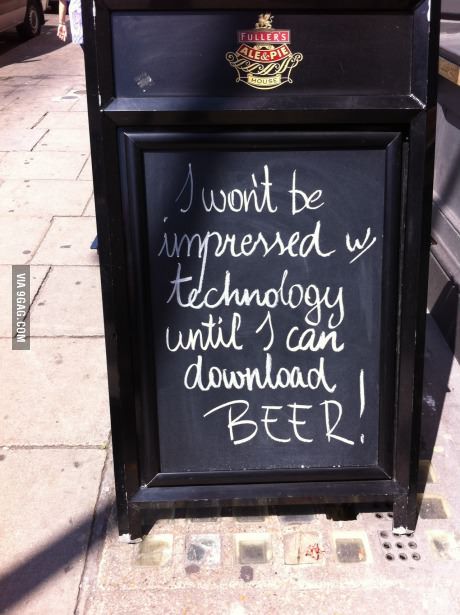 FULLER'S
ALE & PIE
HOUSE
I won't be
impressed w/
technology
until I can
download
BEER!
VIA 9GAG.COM